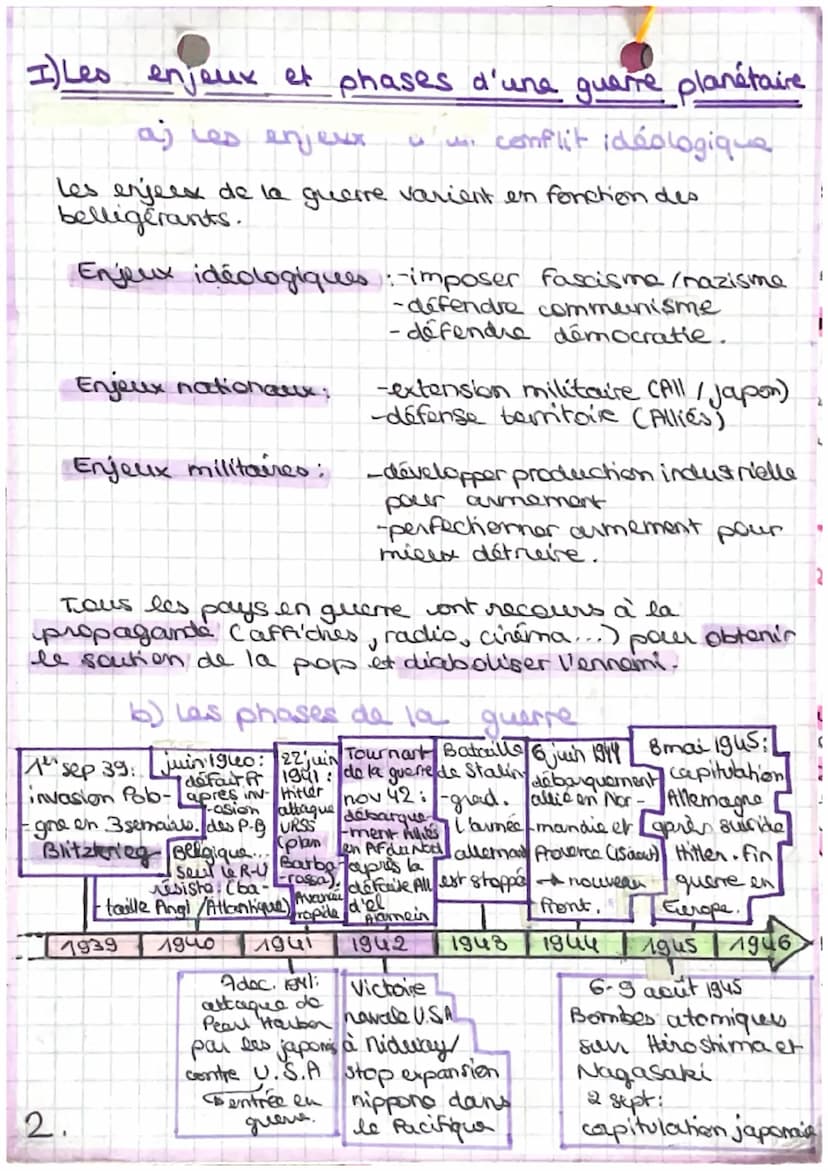 I) Les enjeux et phases d'une guerre planétaire
a) Les enjeux d'un conflit idéologique
Les enjeux de la guerre varient en fonction des
belligérants.
Enjeux idéologiques : -imposer fascisme/nazisme
-défendre communisme
-défendre démocratie.
Enjeux nationaux : -extension militaire (All/Japon)
-défense territoire (Alliés)
Enjeux militaires : -développer production industrielle
pour armement
-perfectionner armement pour
mieux détruire.
Tous les pays en guerre ont recours à la
propagande (affiches, radio, cinéma...) pour obtenir
le soutien de la pop et diaboliser l'ennemi.
b) Les phases de la guerre
1er sep 39:
invasion Polo-
gne en 3 semaines.
Blitzkrieg
juin 1940:
défait Fr
après inv-
asion
des P-B
Belgique...
seul le R-U
résiste (ba-
taille Angl/Atlantique)
22 juin
1941:
Hitler
attaque
URSS
(plan
Barba-
rossa).
Avancée
rapide
Tournant
de la guerre
nov 42:
débarque-
ment Alliés
en Af du Nord
après la
défaite All
d'el
Alamein
Bataille
de Stalin-
grad.
L'armée
allemand
est stoppé
6 juin 1944
débarquement
allié en Nor-
mandie et
Provence (15 aout)
→ nouveau
front.
8 mai 1945:
capitulation
Allemagne
après suicide
Hitler. Fin
guerre en
Europe.
1939 1940 1941 1942 1943 1944 1945 1946
7 dec. 1941:
attaque de
Pearl Harbor
par les japonais
contre U.S.A
↳ entrée en
guerre.
Victoire
navale U.S.A
à Midway/
stop expansion
nippone dans
le Pacifique
6-9 août 1945
Bombes atomiques
sur Hiroshima et
Nagasaki
2 sept:
capitulation japonaise
2.